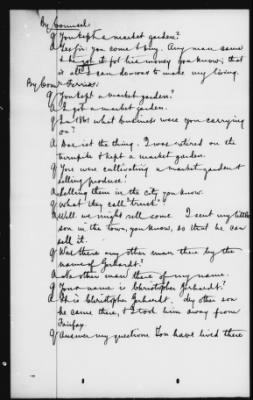 By Counsel.
Q You kept a market garden?
A Yes sir: you come & buy. Any man came
& he got it for his money you know; that
is all I can do now to make my living.
By Com'r Ferriss.
Q You kept a market garden?
A I got a market garden.
Q In 1861 what business were you carrying
on?
A Dae ist the thing. I was retired on the
turnpike & kept a market garden.
Q You were cultivating a market garden &
selling produce?
A Selling them in the city you know.
Q What they call "truck"?
A Well we might sell some I sent my little
son in the town, you know, so that he can
sell it.
Q Was there any other man there by the
name of Gerhardt?
A No other man there of my name.
Q Your name is Christopher Gerhardt?
A It is Christopher Gerhardt. My other son
he came there, & I took him away from
Fairfax.
Q Answer my question. You have lived there